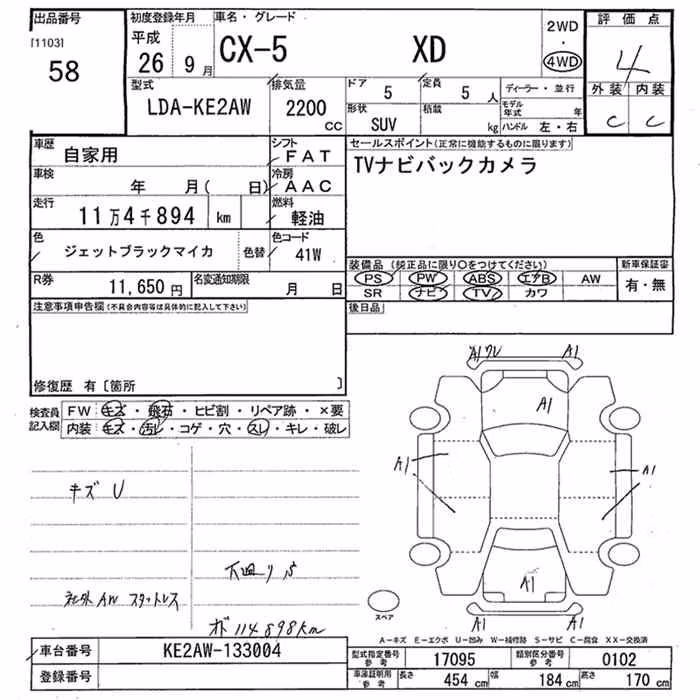 出品番号
[1103]
58
初度登録年月
平成
26 9月
車名・グレード
CX-5 XD
2WD
・
4WD
評価点
4
外装 内装
C C
型式
LDA-KE2AW
排気量
2200
CC
ドア
5
定員
5 人
形状
SUV
積載
kg
ディーラー・並行
モデル年式 年
ハンドル 左・右
車歴
自家用
シフト
FAT
車検
年 月( 日)
冷房
AAC
走行
11万4千894 km
燃料
軽油
色
ジェットブラックマイカ
色替
色コード
41W
R券
11,650 円
名変通知期限
月 日
セールスポイント(正常に機能するものに限ります)
TVナビバックカメラ
装備品 (純正品に限り○をつけてください)
PS PW ABS エアB AW
SR ナビ TV カワ
新車保証書
有・無
注意事項申告欄(不具合内容等は具体的に記入して下さい)
後日品
修復歴 有〔箇所 〕
検査員記入欄
FW キズ・飛石・ヒビ割・リペア跡・×要
内装 キズ・汚レ・コゲ・穴・スレ・キレ・破レ
キズ U
下廻りS
社外AW スタットレス
オド 114898km
A1 ワレ A1
A1
A1
A1
A1
A1 A1
スペア
A-キズ E-エクボ U-凹み W-補修跡 S-サビ C-腐食 XX-交換済
車台番号
KE2AW-133004
登録番号
型式指定番号 参考
17095
類別区分番号 参考
0102
車庫証明用 参考
長さ 454 cm
幅 184 cm
高さ 170 cm